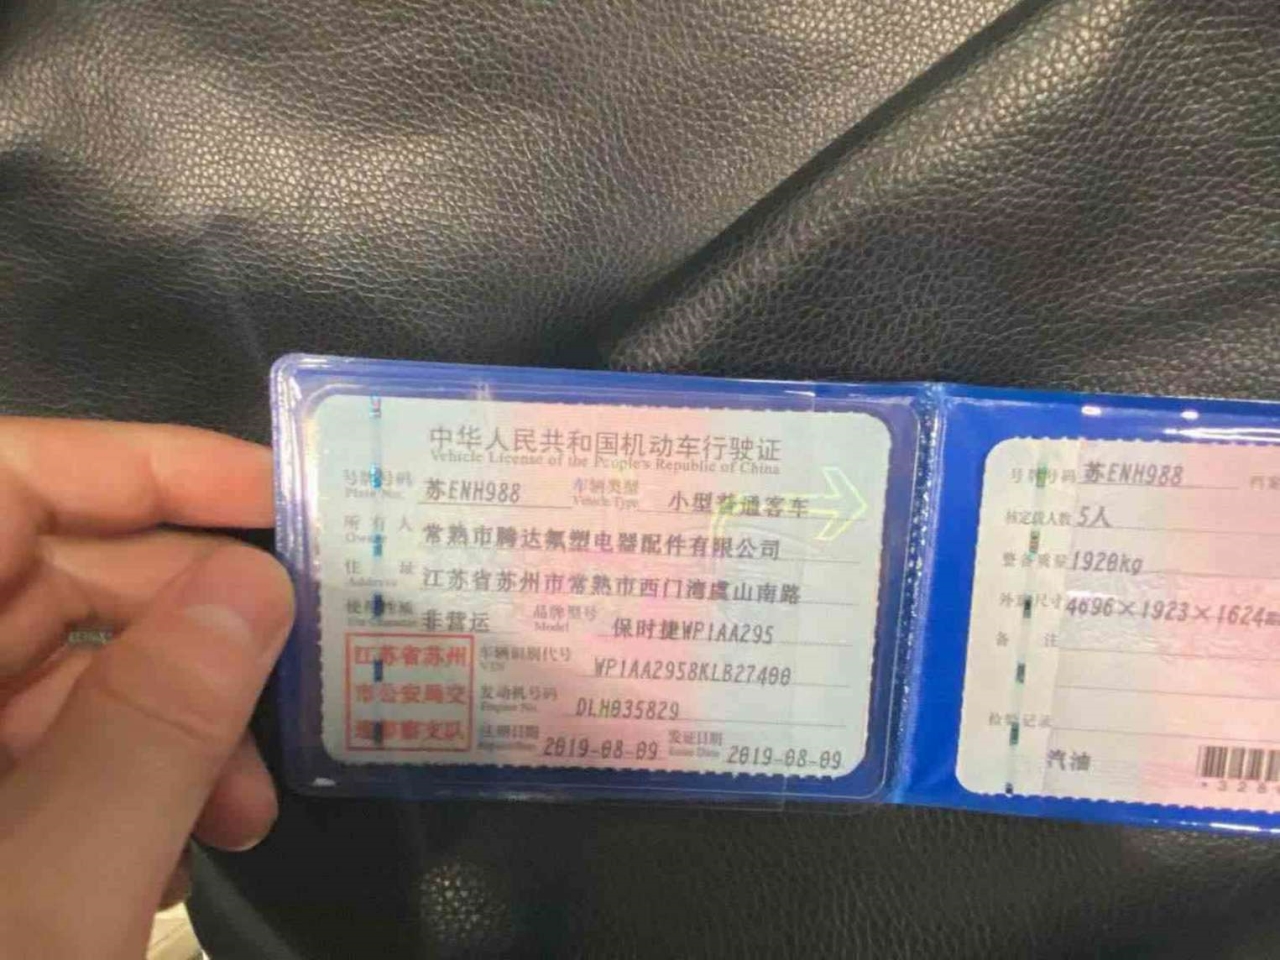 中华人民共和国机动车行驶证
Vehicle License of the People's Republic of China
号牌号码 苏ENH988 车辆类型 小型普通客车
Plate No. Vehicle Type
所有人 常熟市腾达氟塑电器配件有限公司
Owner
住址 江苏省苏州市常熟市西门湾虞山南路
Address
使用性质 非营运 品牌型号 保时捷WP1AA295
Use Character Model
江苏省苏州
市公安局交
通警察支队
车辆识别代号 WP1AA2958KLB27400
VIN
发动机号码 DLH035829
Engine No.
注册日期 2019-08-09 发证日期 2019-08-09
Register Date Issue Date
号牌号码 苏ENH988 档案
核定载人数 5人
整备质量 1920kg
外廓尺寸 4696×1923×1624
备注
检验记录
汽油
*328